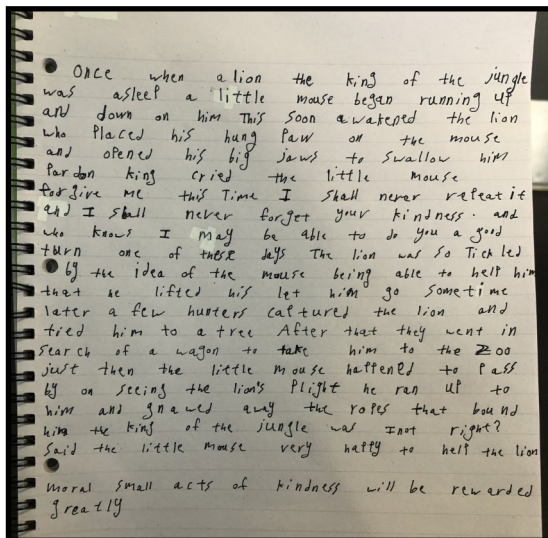 Once when a lion the king of the jungle
was asleep a little mouse began running up
and down on him This soon awakened the lion
who placed his hung paw on the mouse
and opened his big jaws to swallow him
Pardon king cried the little mouse
forgive me this Time I shall never repeat it
and I shall never forget your kindness. and
who knows I may be able to do you a good
turn one of these days The lion was so Tickled
by the idea of the mouse being able to help him
that he lifted his let him go sometime
later a few hunters captured the lion and
tied him to a tree After that they went in
Search of a wagon to take him to the Zoo
just then the little mouse happened to pass
by on seeing the lion's plight he ran up to
him and gnawed away the ropes that bound
him the king of the jungle was I not right?
Said the little mouse very happy to help the lion
moral small acts of kindness will be rewarded
greatly